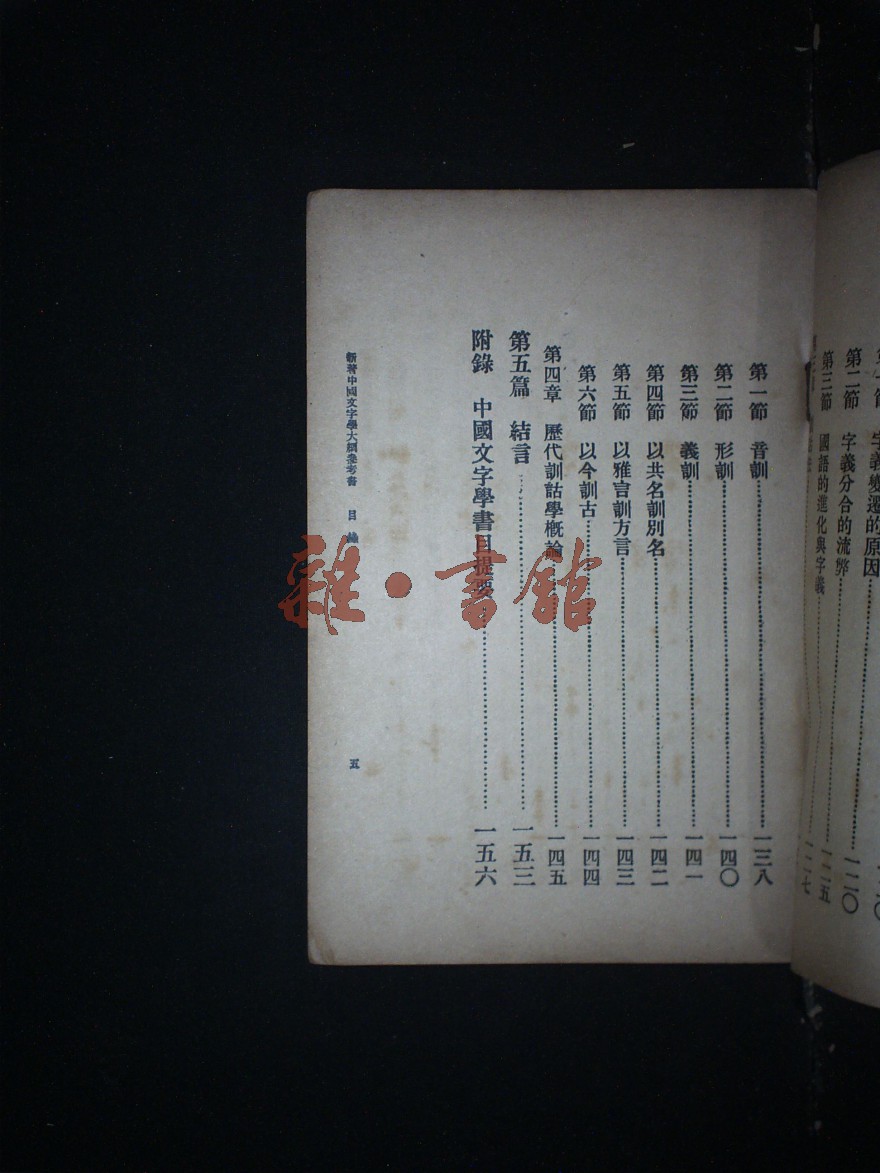 第二節 字義分合的流弊……一二〇
第三節 國語的進化與字義……一二五
第一節 音訓……一三八
第二節 形訓……一四〇
第三節 義訓……一四一
第四節 以共名訓別名……一四二
第五節 以雅言訓方言……一四三
第六節 以今訓古……一四四
第四章 歷代訓詁學概論……一四五
第五篇 結言……一五三
附錄 中國文字學書目提要……一五六
新著中國文字學大綱參考書 目錄 五
雜·書館